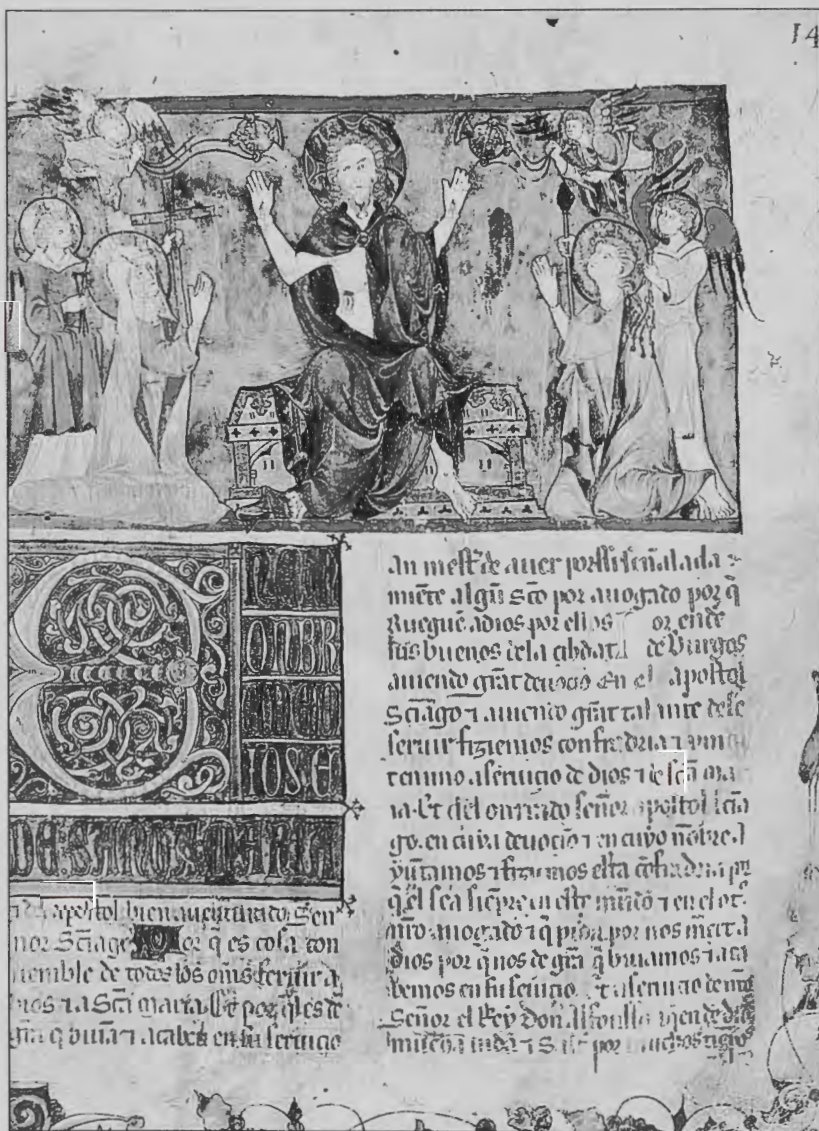 14
E
N EL N
ONBR
E DE D
IOS. E
DE: SANCTA MARIA
⁊ del apostol bien auenturado Sen
nor Sc̄iago Por q̄ es cosa con
uenible de todos los om̄s seruir a
dios ⁊ a Sc̄a maria. Et por q̄ les de
gr̄a q̄ biuā ⁊ acabē en su seruicio
an mest̄ de auer por si señalada
miēte algū Sc̄o por auogado por q̄
Ruegue adios por ellos Por ende
los buenos dela cibdat de Burgos
auiendo grāt deuoçiō en el apostol
Sc̄iago ⁊ auiendo grāt talante dele
seruir fiziemos confradria ⁊
a seruicio de dios ⁊ de sc̄a ma
ria. Et del onrrado señor apostol sc̄ia
go. en cuya deuociō ⁊ en cuyo nōbre.
yūtamos ⁊ fiziemos esta cōfradria por
q̄ el sea siēpre en este mūdo ⁊ en el ot
nr̄o auogado ⁊ q̄ por nos mercet a
dios por q̄ nos de gr̄a q̄ biuamos ⁊ aca
bemos en su seruicio. Et a seruicio de nr̄o
Señor el Rey Don Alfonsso q̄ en de dios
mucha uida ⁊ por muchos